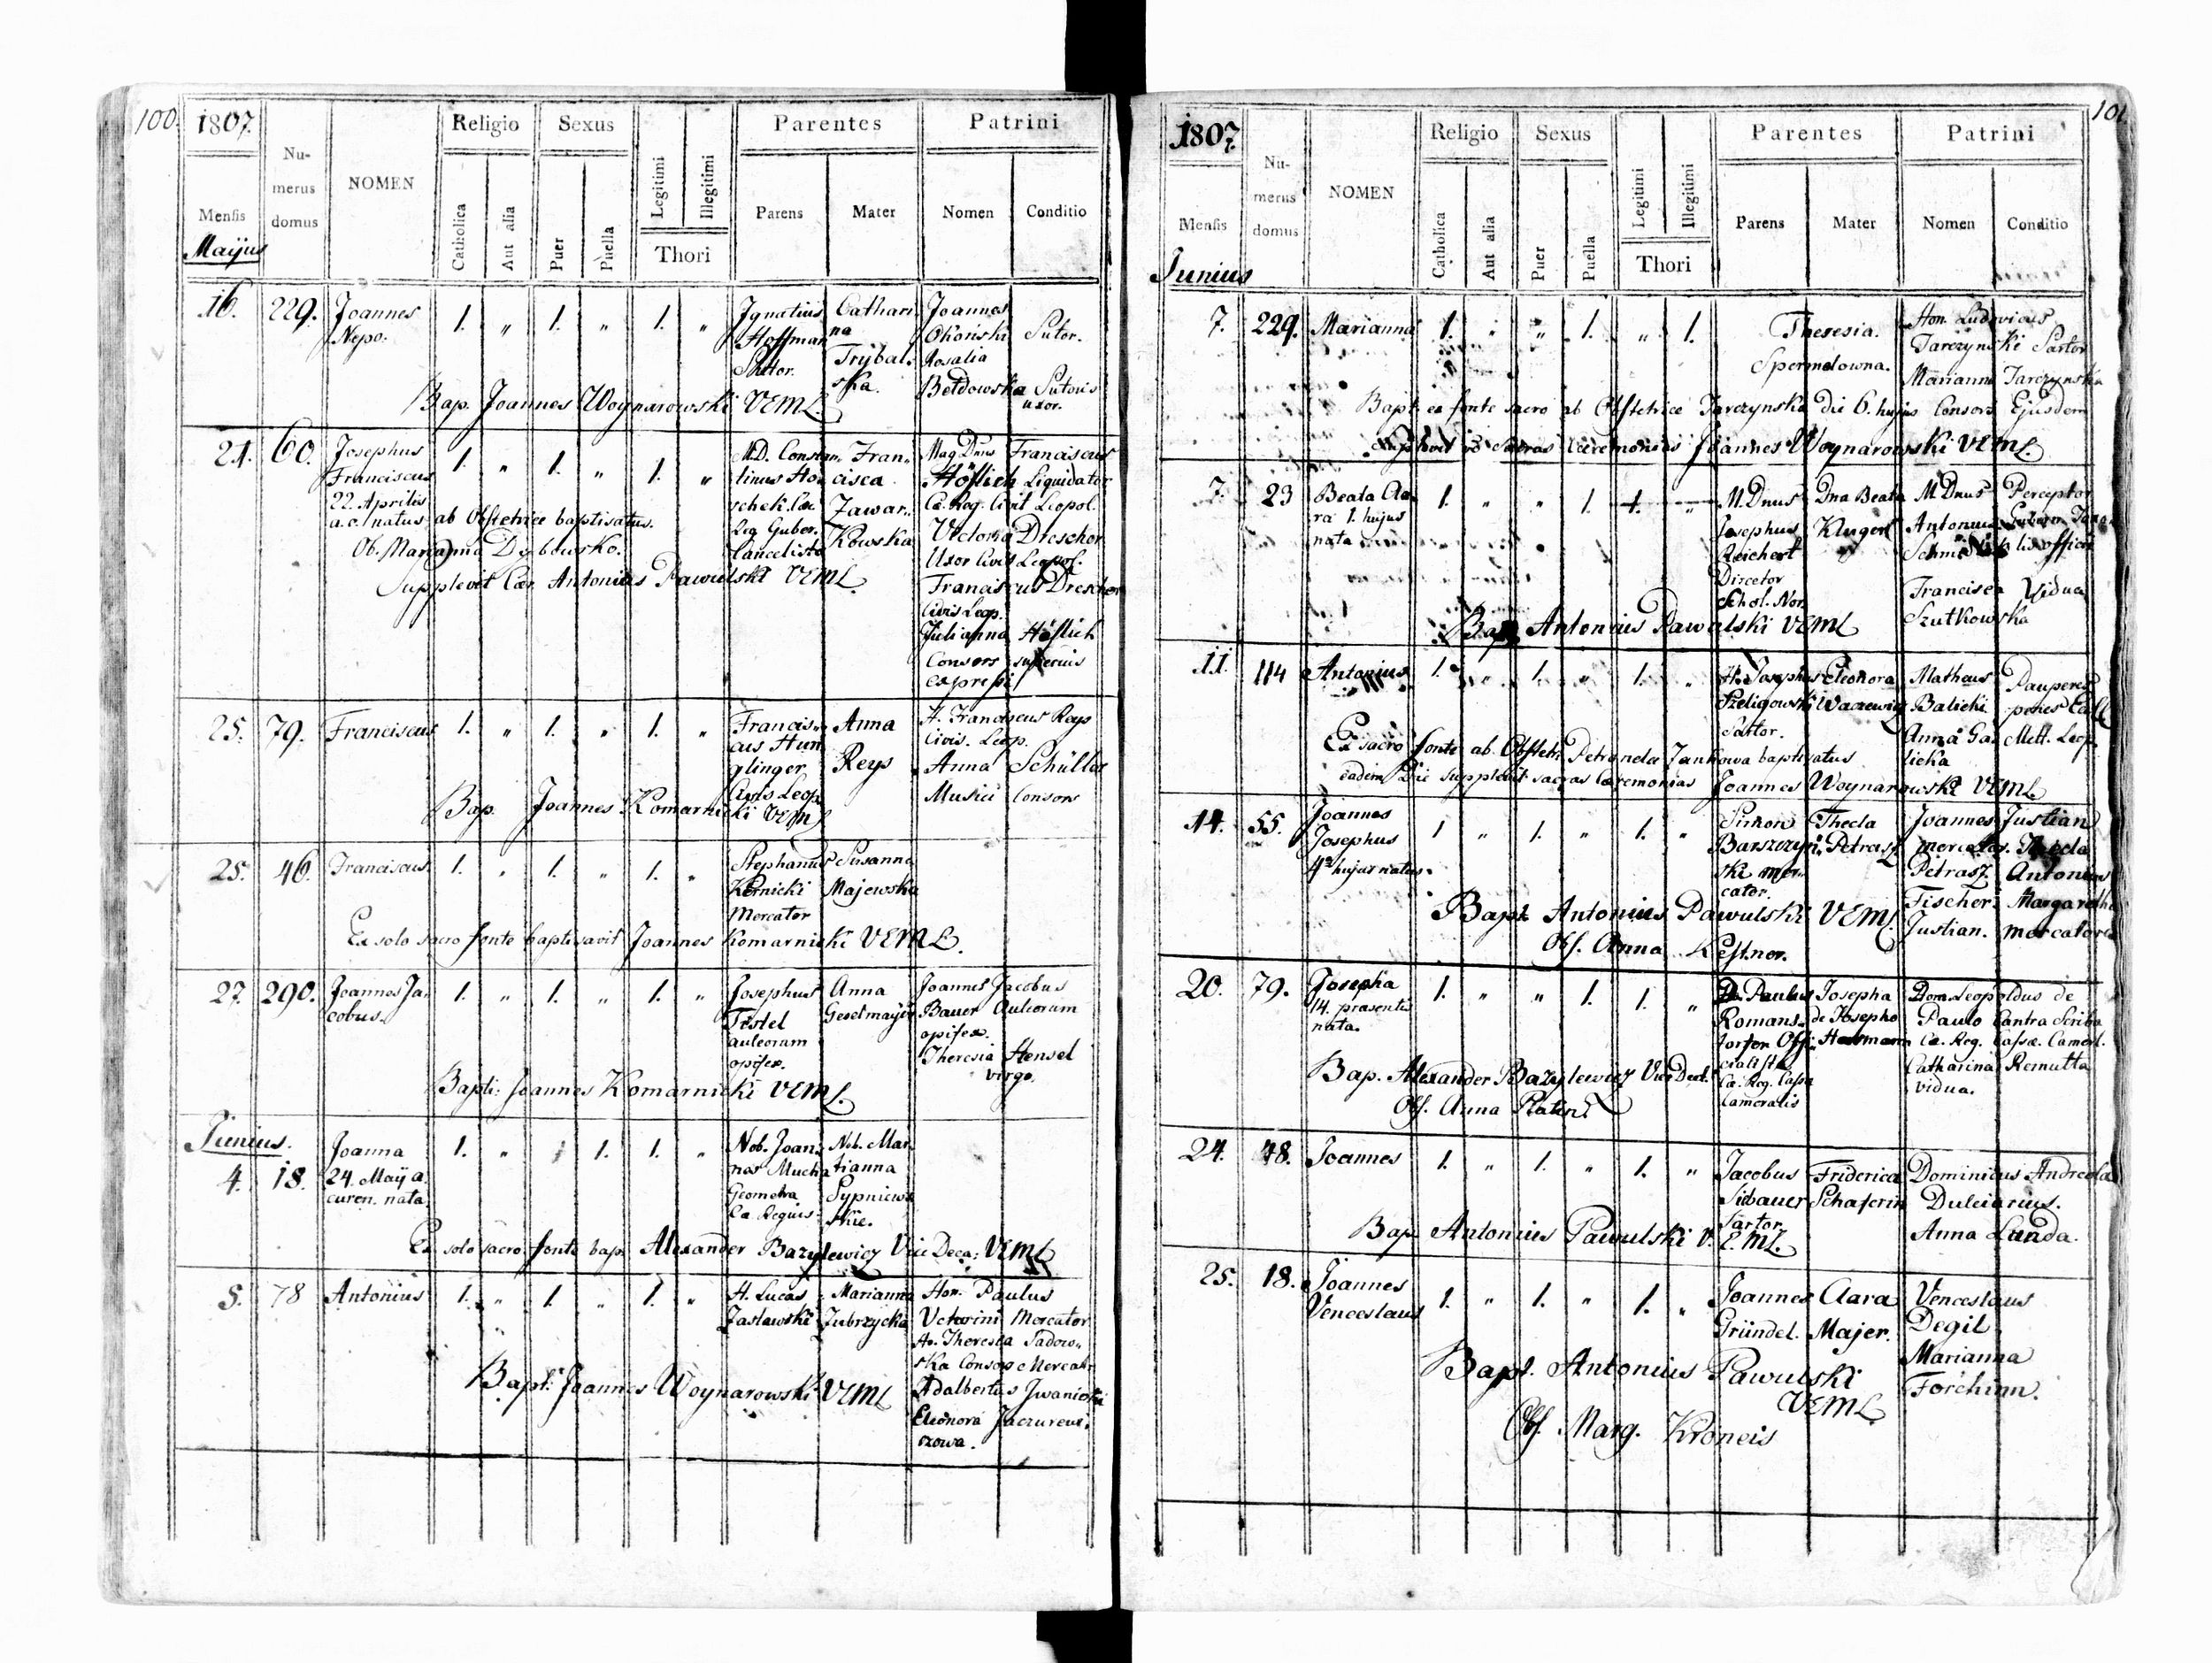 100.
1807.
Mensis
Maijus
Numerus domus
NOMEN
Religio
Catholica
Aut alia
Sexus
Puer
Puella
Legitimi
Illegitimi
Thori
Parentes
Parens
Mater
Patrini
Nomen
Conditio
16. 229. Joannes Nepo. 1. „ 1. „ 1. „
Ignatius Hoffman Sutor.
Cathari na Trybal ska.
Joannes
Rosalia
Sutor.
Sutoris uxor.
Bap. Joannes Woynarowski VEML.
21. 60. Josephus Franciscus 1. „ 1. „ 1. „
22. Aprilis a. c. natus ab Obstetrice baptisatus.
Ob. Marianna
Supplevit Cær. Antonius Pawulski VEML.
Fran„ cisca Zawar„ kowska
Mag Dnus Franciscus
Höflich Liquidator
Cæ. Reg. Civit Leopol.
Victoria Drescher
Uxor Civis Leopol.
Franciscus Drescher
Civis Leop.
Julianna Höflich
Consors superius
expressi
25. 79. Franciscus 1. „ 1. „ 1. „
Francis„ cus Hun glinger Civis Leop.
Anna Reys
H. Franciscus Reys
Civis. Leop.
Anna Schüller
Musici Consors
Bap. Joannes Komarnicki VEML
25. 46. Franciscus. 1. „ 1. „ 1. „
Stephanus Kernicki Mercator
Susanna Majewska
Ex solo sacro fonte baptisavit Joannes Komarnicki VEML.
27. 290. Joannes Ja„ cobus. 1. „ 1. „ 1. „
Josephus Tistel auleorum opifex.
Anna Geselmayer
Joannes Jacobus
Bauer Auleorum
opifex.
Theresia Hensel
virgo.
Bapti: Joannes Komarnicki VEML.
Junius.
4. 18. Joanna 1. „ 1. 1. „
24. Maij a. curen. nata
Nob. Joan„ nes Mucha Geometra Cæ Regius
Nob. Mar tianna Sypniew skie.
Ex solo sacro fonte bap. Alexander Bazylewicz Vice Deca: VEML
5. 78 Antonius 1. „ 1. „ 1. „
H. Lucas Zaslawski
Marianna Zubrzycka
Hon. Paulus
Victorini Mercator
Theresia Sadow„
ska Consors Mercat.
Adalbertus Iwanicki
Eleonora
Bapt: Joannes Woynarowski VEML
101
1807
Mensis
Junius
Numerus domus
NOMEN
Religio
Catholica
Aut alia
Sexus
Puer
Puella
Legitimi
Illegitimi
Thori
Parentes
Parens
Mater
Patrini
Nomen
Conditio
7. 229. Marianna 1. „ „ 1. „ 1.
Theresia.
Hon. Ludovicus
Tarczynski Sartor
Marianna Tarczynska
Bapt. ex fonte sacro ab Obstetrice Tarczynska die 6. hujus Consors Ejusdem
Supplevit sacras Cæremonias Joannes Woynarowski VEML.
7. 23 Beata Cla„ ra 1. hujus nata 1. „ „ 1. 1. „
M. Dnus Josephus Reichert Director Schol. Nor.
Dna Beata Klugerl
M Dnus Antonius
Perceptor
Francisca Szutkowska
Vidua
Bap. Antonius Pawulski VEML
11. 114 Antonius 1. „ 1. „ 1. „
H. Josephus Szeligowski Sartor.
Eleonora
Matheus Balicki
Anna Ga licka
Pauperes penes
Ex sacro fonte ab Obstetr. Petronela Jankowa baptisatus
eadem Die supplevit sacras Cæremonias Joannes Woynarowski VEML.
14. 55. Joannes Josephus 1 „ 1. „ 1. „
4ta hujus natus.
Simon Barszczyń ski mer„ cator.
Thecla Petrasz
Joannes Justian
mercator. Thecla
Petrasz. Antonius
Fischer. Margaretha
Justian. mercatores
Bapt. Antonius Pawulski VEML.
Obs. Anna Kestner.
20. 79. Josepha 1. „ „ 1. 1. „
14. præsentis nata.
Paulus Romans„ torfer Offi„ cialista Cæ. Reg. Cassæ Cameralis
Josepha de Josepho
Dom. Leopoldus de
Paulo Contra Scriba
Cæ. Reg. Cassæ. Camerl.
Catharina Remutta
vidua.
Bap. Alexander Bazylewicz Vice Deca:
Obs. Anna Platin.
24. 48. Joannes 1. „ 1. „ 1. „
Jacobus Sidauer Sartor
Friderica Schaferin
Dominicus Andreola
Dulciarius.
Anna Lunda.
Bap. Antonius Pawulski V. E. ML.
25. 18. Joannes Venceslaus 1. „ 1. „ 1. „
Joannes Gründel.
Clara Majer.
Venceslaus
Degil
Marianna
Forchinn.
Bapt. Antonius Pawulski
VEML
Obs. Marg. Kroneis